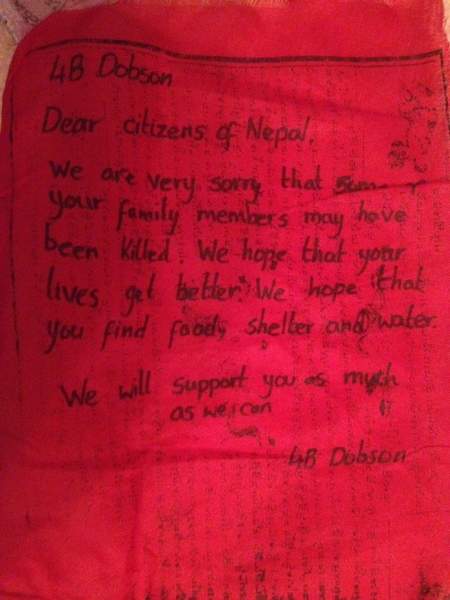 4B Dobson
Dear citizens of Nepal,
We are very sorry that
your family members may have
been killed. We hope that your
lives get better. We hope that
you find food, shelter and water.
We will support you as much
as we can
4B Dobson